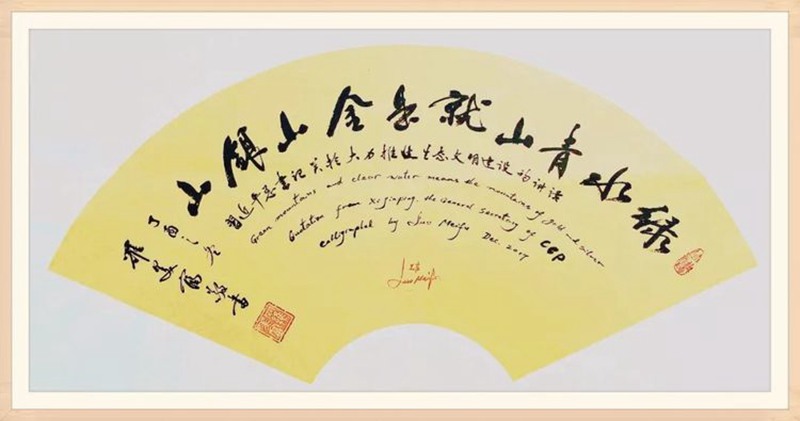 绿水青山就是金山銀山
習近平总書記关於大力推進生态文明建设的讲话
Green mountains and clear water means the mountains of gold and silver
Quotation from Xi Jinping, the General secretary of CCP
Calligraphed by Meifu Dec. 2017
丁酉之冬
美富 書